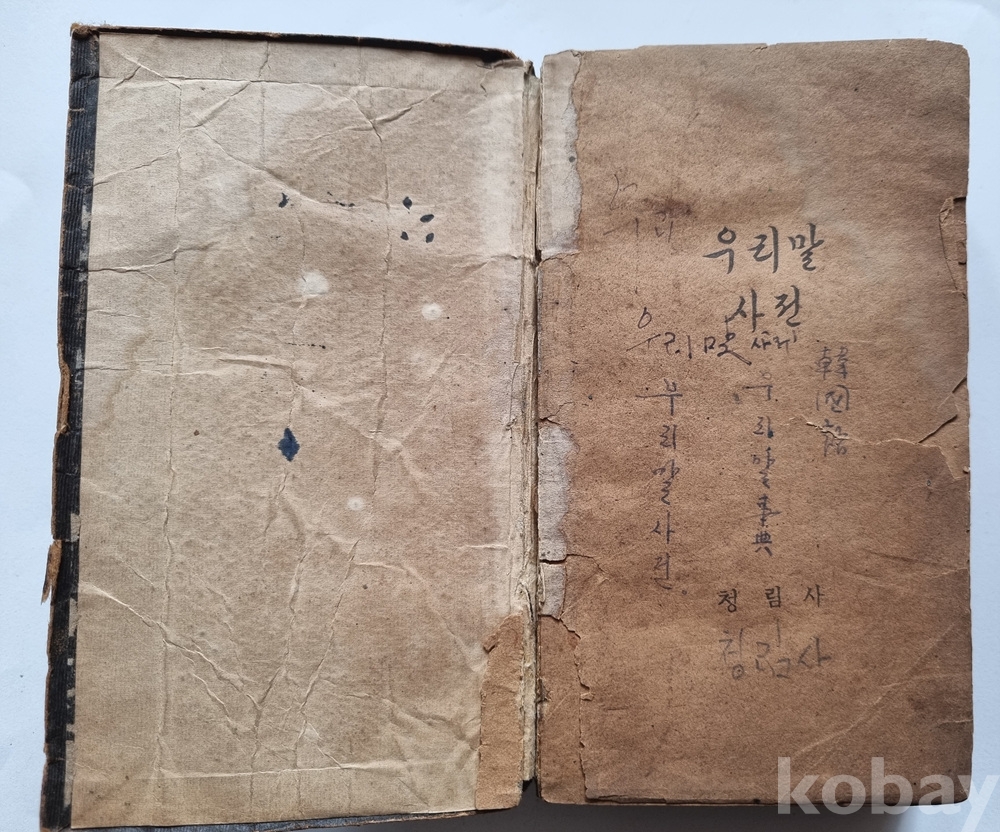 우리말
사전
우리말 사전
우리말사전
우리말事典
韓國語
청림사
청림사
kobay